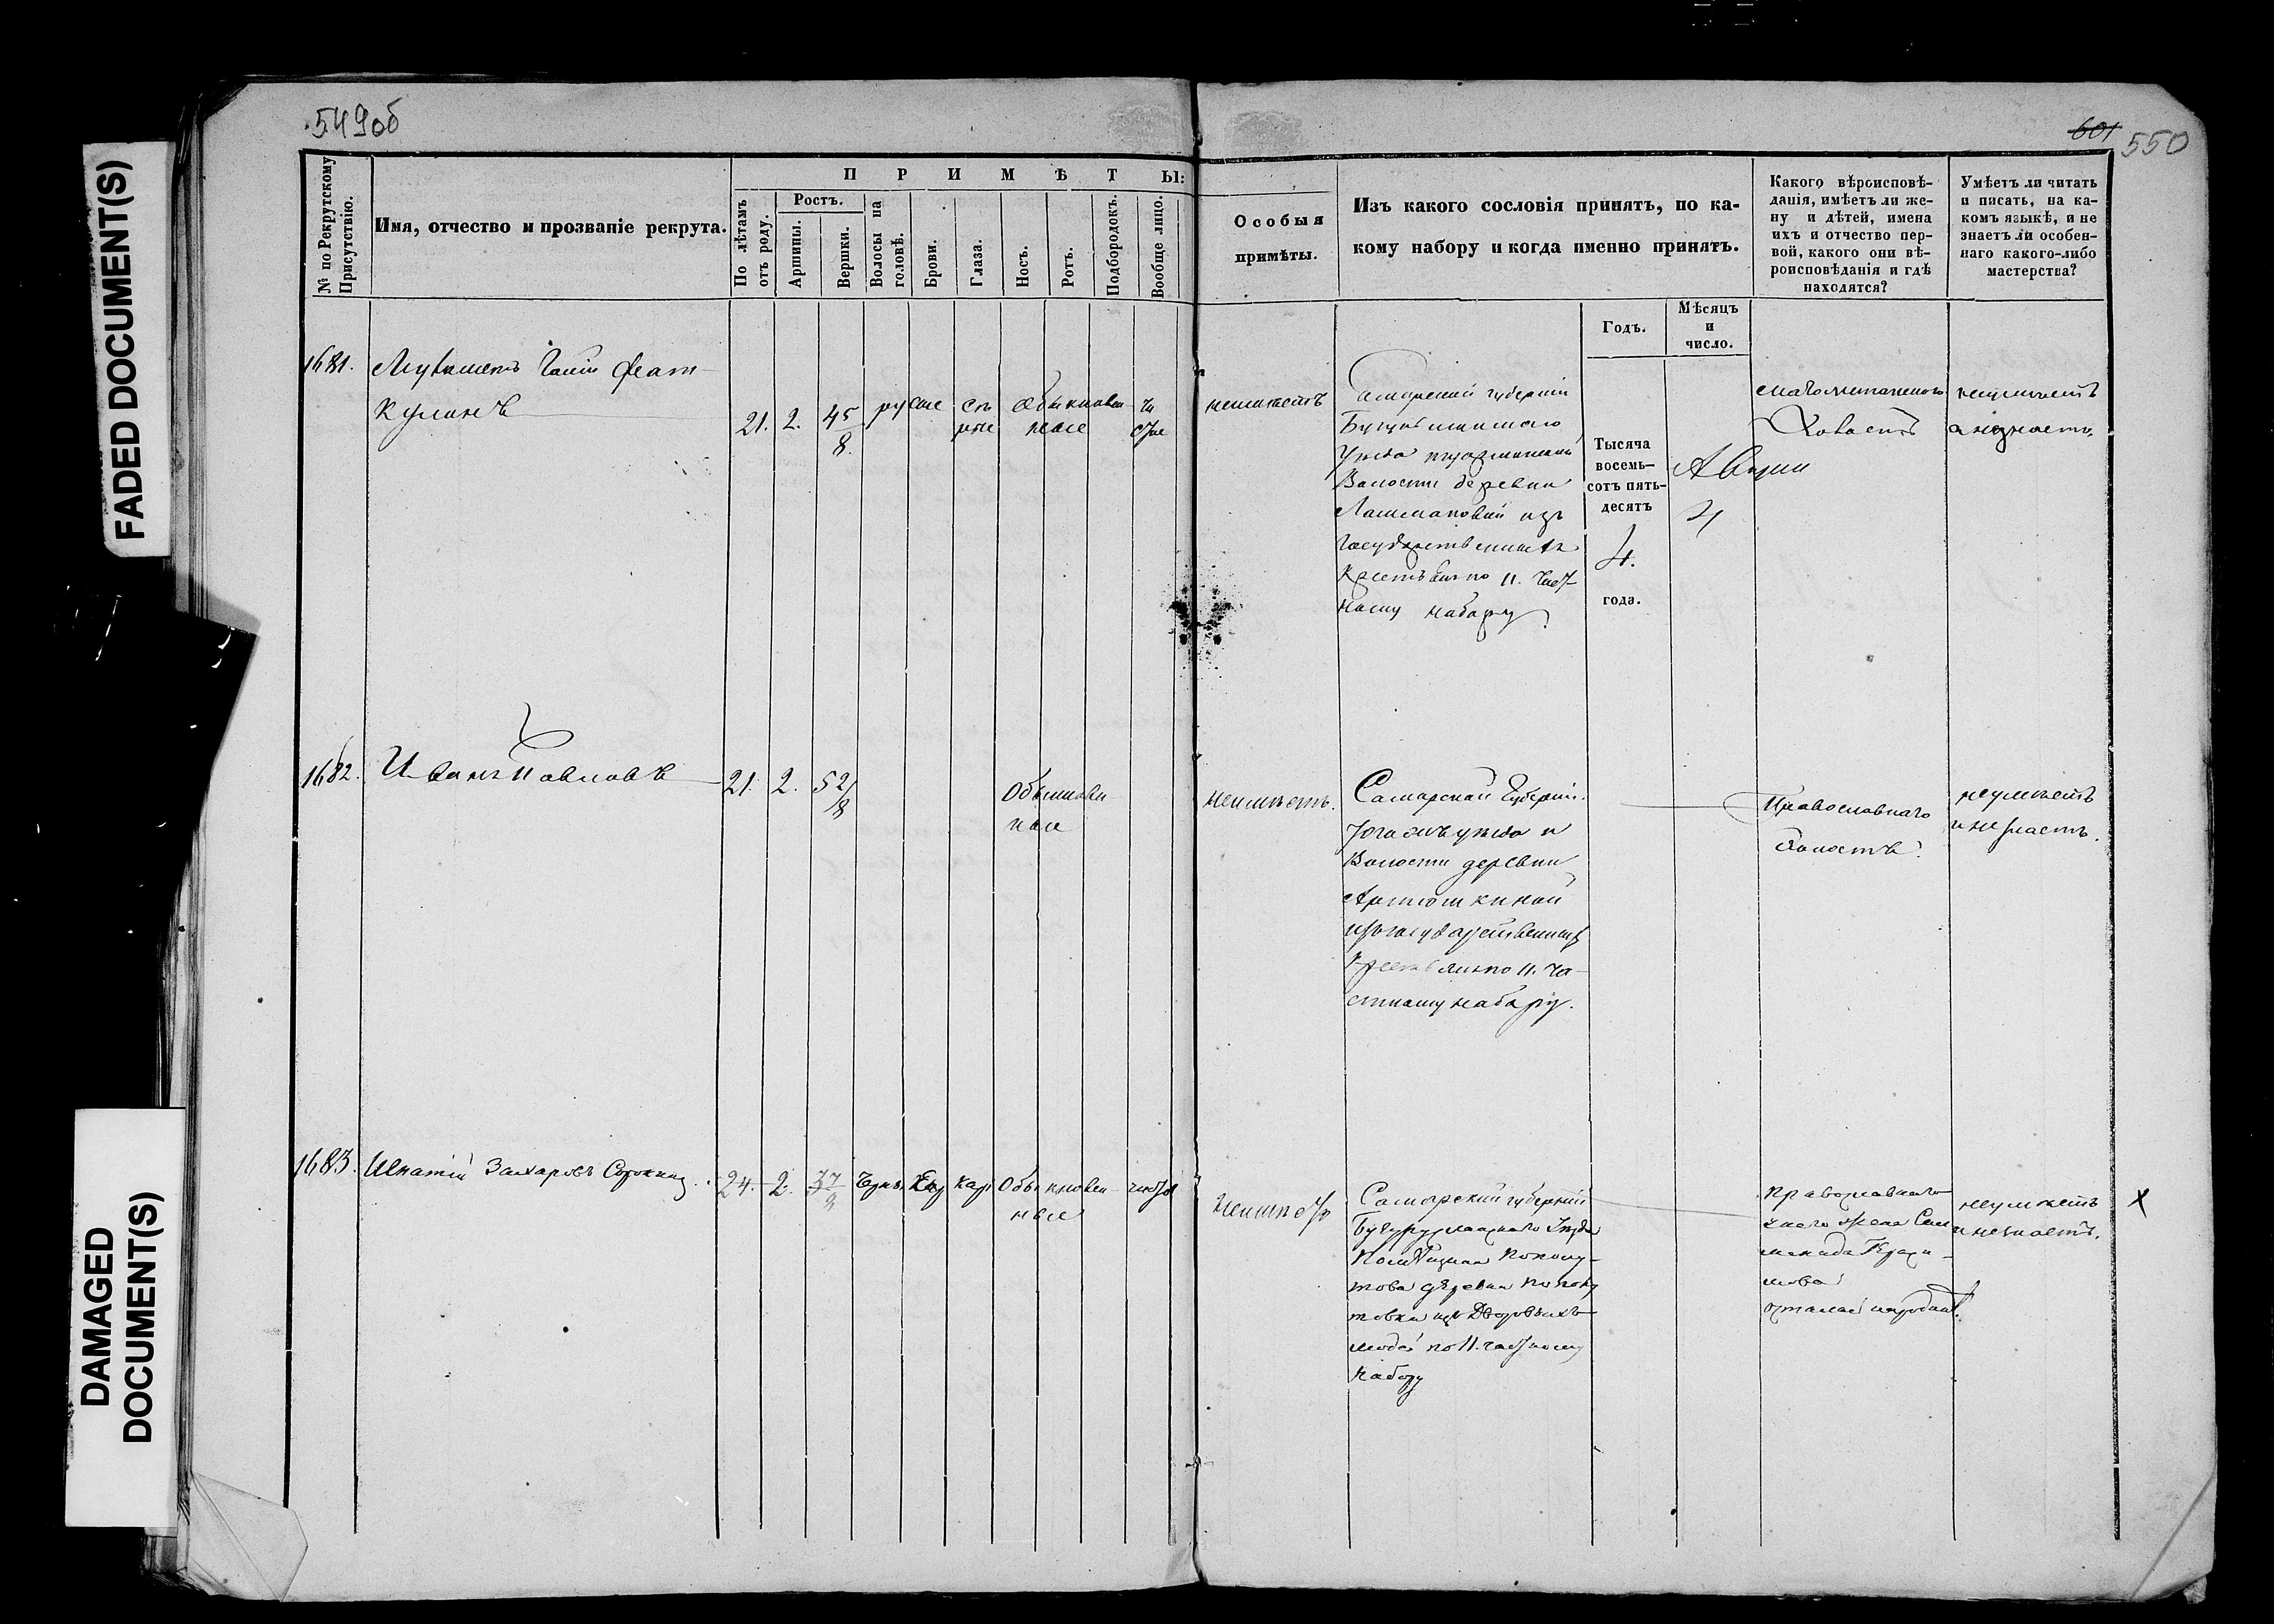 549об
601
550
FADED DOCUMENT(S)
DAMAGED
DOCUMENT(S)
№ по Рекрутскому
Присутствію.
Имя, отчество и прозваніе рекрута.
П Р И М Ѣ Т Ы:
По лѣтамъ
отъ роду.
Ростъ.
Аршины.
Вершки.
Волосы на
головѣ.
Брови.
Глаза.
Носъ.
Ротъ.
Подбородокъ.
Вообще лицо.
Особыя
примѣты.
Изъ какого сословія принятъ, по ка-
кому набору и когда именно принятъ.
Годъ.
Мѣсяцъ
и
число.
Какого вѣроисповѣ-
данія, имѣетъ ли же-
ну и дѣтей, имена
ихъ и отчество пер-
вой, какого они вѣ-
роисповѣданія и гдѣ
находятся?
Умѣетъ ли читать
и писать, на ка-
комъ языкѣ, и не
знаетъ ли особен-
наго какого-либо
мастерства?
1681.
Феат-
кулинъ
21. 2. 45/8.
русые
Сѣ
рые
Обыкновен
ные
чи
стое
неимѣетъ
Самарской губерніи
Бугульминского
Уѣзда
Волости деревни
изъ
Государственныхъ
Крестьянъ по 11. част-
ному набору
Тысяча
восемь-
сотъ пять-
десятъ
4.
года.
магометанскаго
Холостъ
неумѣетъ
и незнаетъ.
1682.
Иванъ Павловъ
21. 2. 52/8
Обыкновен
ные
неимѣетъ.
Самарской Губерніи.
тогожъ уѣзда и
Волости деревни
Артюшкиной
изъ государственныхъ
Крестьянъ по 11. ча-
стному набору.
Православнаго
Холостъ.
неумѣетъ
и незнаетъ.
1683.
Игнатій Захаровъ Сорокинъ
24. 2. 37/8
кар
Обыкновен-
ные
чистое
неимѣетъ
Самарский губерніи
Бугурусланскаго Уѣзда
деревни
изъ Дворовыхъ
людей по 11. частному
набору
православнаго
у него жена
неумѣетъ
и незнаетъ.
х